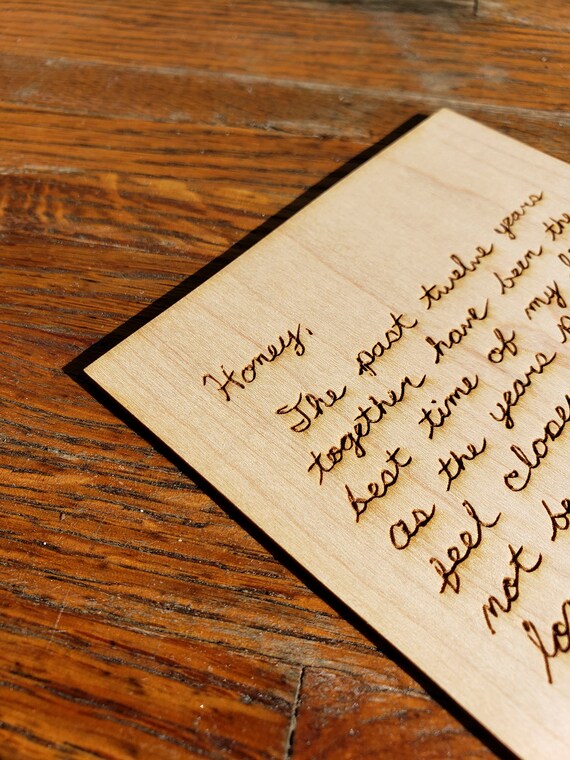 Honey,
The past twelve years
together have been the
best time of my
as the years
feel closer
not